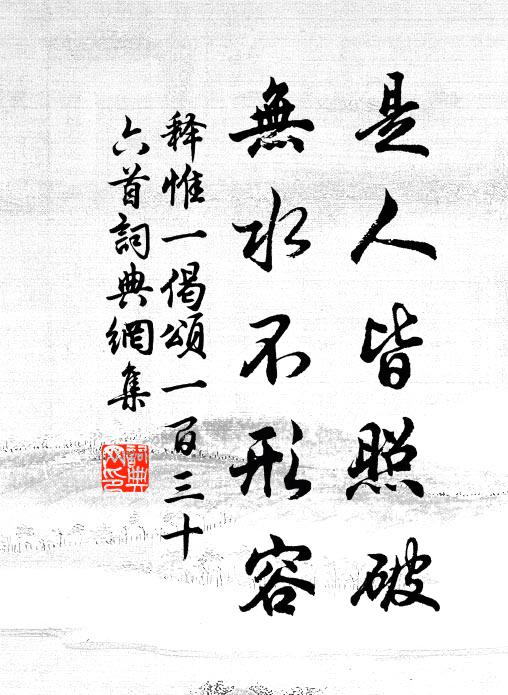 是人皆照破
無水不形容
释惟一偈頌一百三十
六首詞典網集
詞典网印